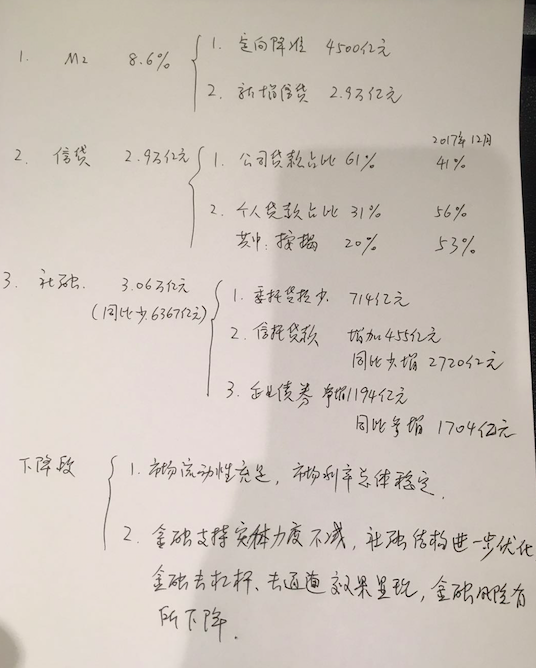 1. M2 8.6% 1. 定向降准 4500亿元
2. 新增信贷 2.9万亿元
2017年12月
2. 信贷 2.9万亿元 1. 公司贷款占比 61% 41%
2. 个人贷款占比 31% 56%
其中:按揭 20% 53%
3. 社融. 3.06万亿元 1. 委托贷款少 714亿元
(同比少6367亿元)
2. 信托贷款 增加455亿元
同比少增 2720亿元
3. 企业债券 净增1194亿元
同比多增 1704亿元
下降段 1. 市场流动性充足,市场利率总体稳定.
2. 金融支持实体力度不减,社融结构进一步优化
金融去杠杆、去通道效果显现,金融风险有
所下降.